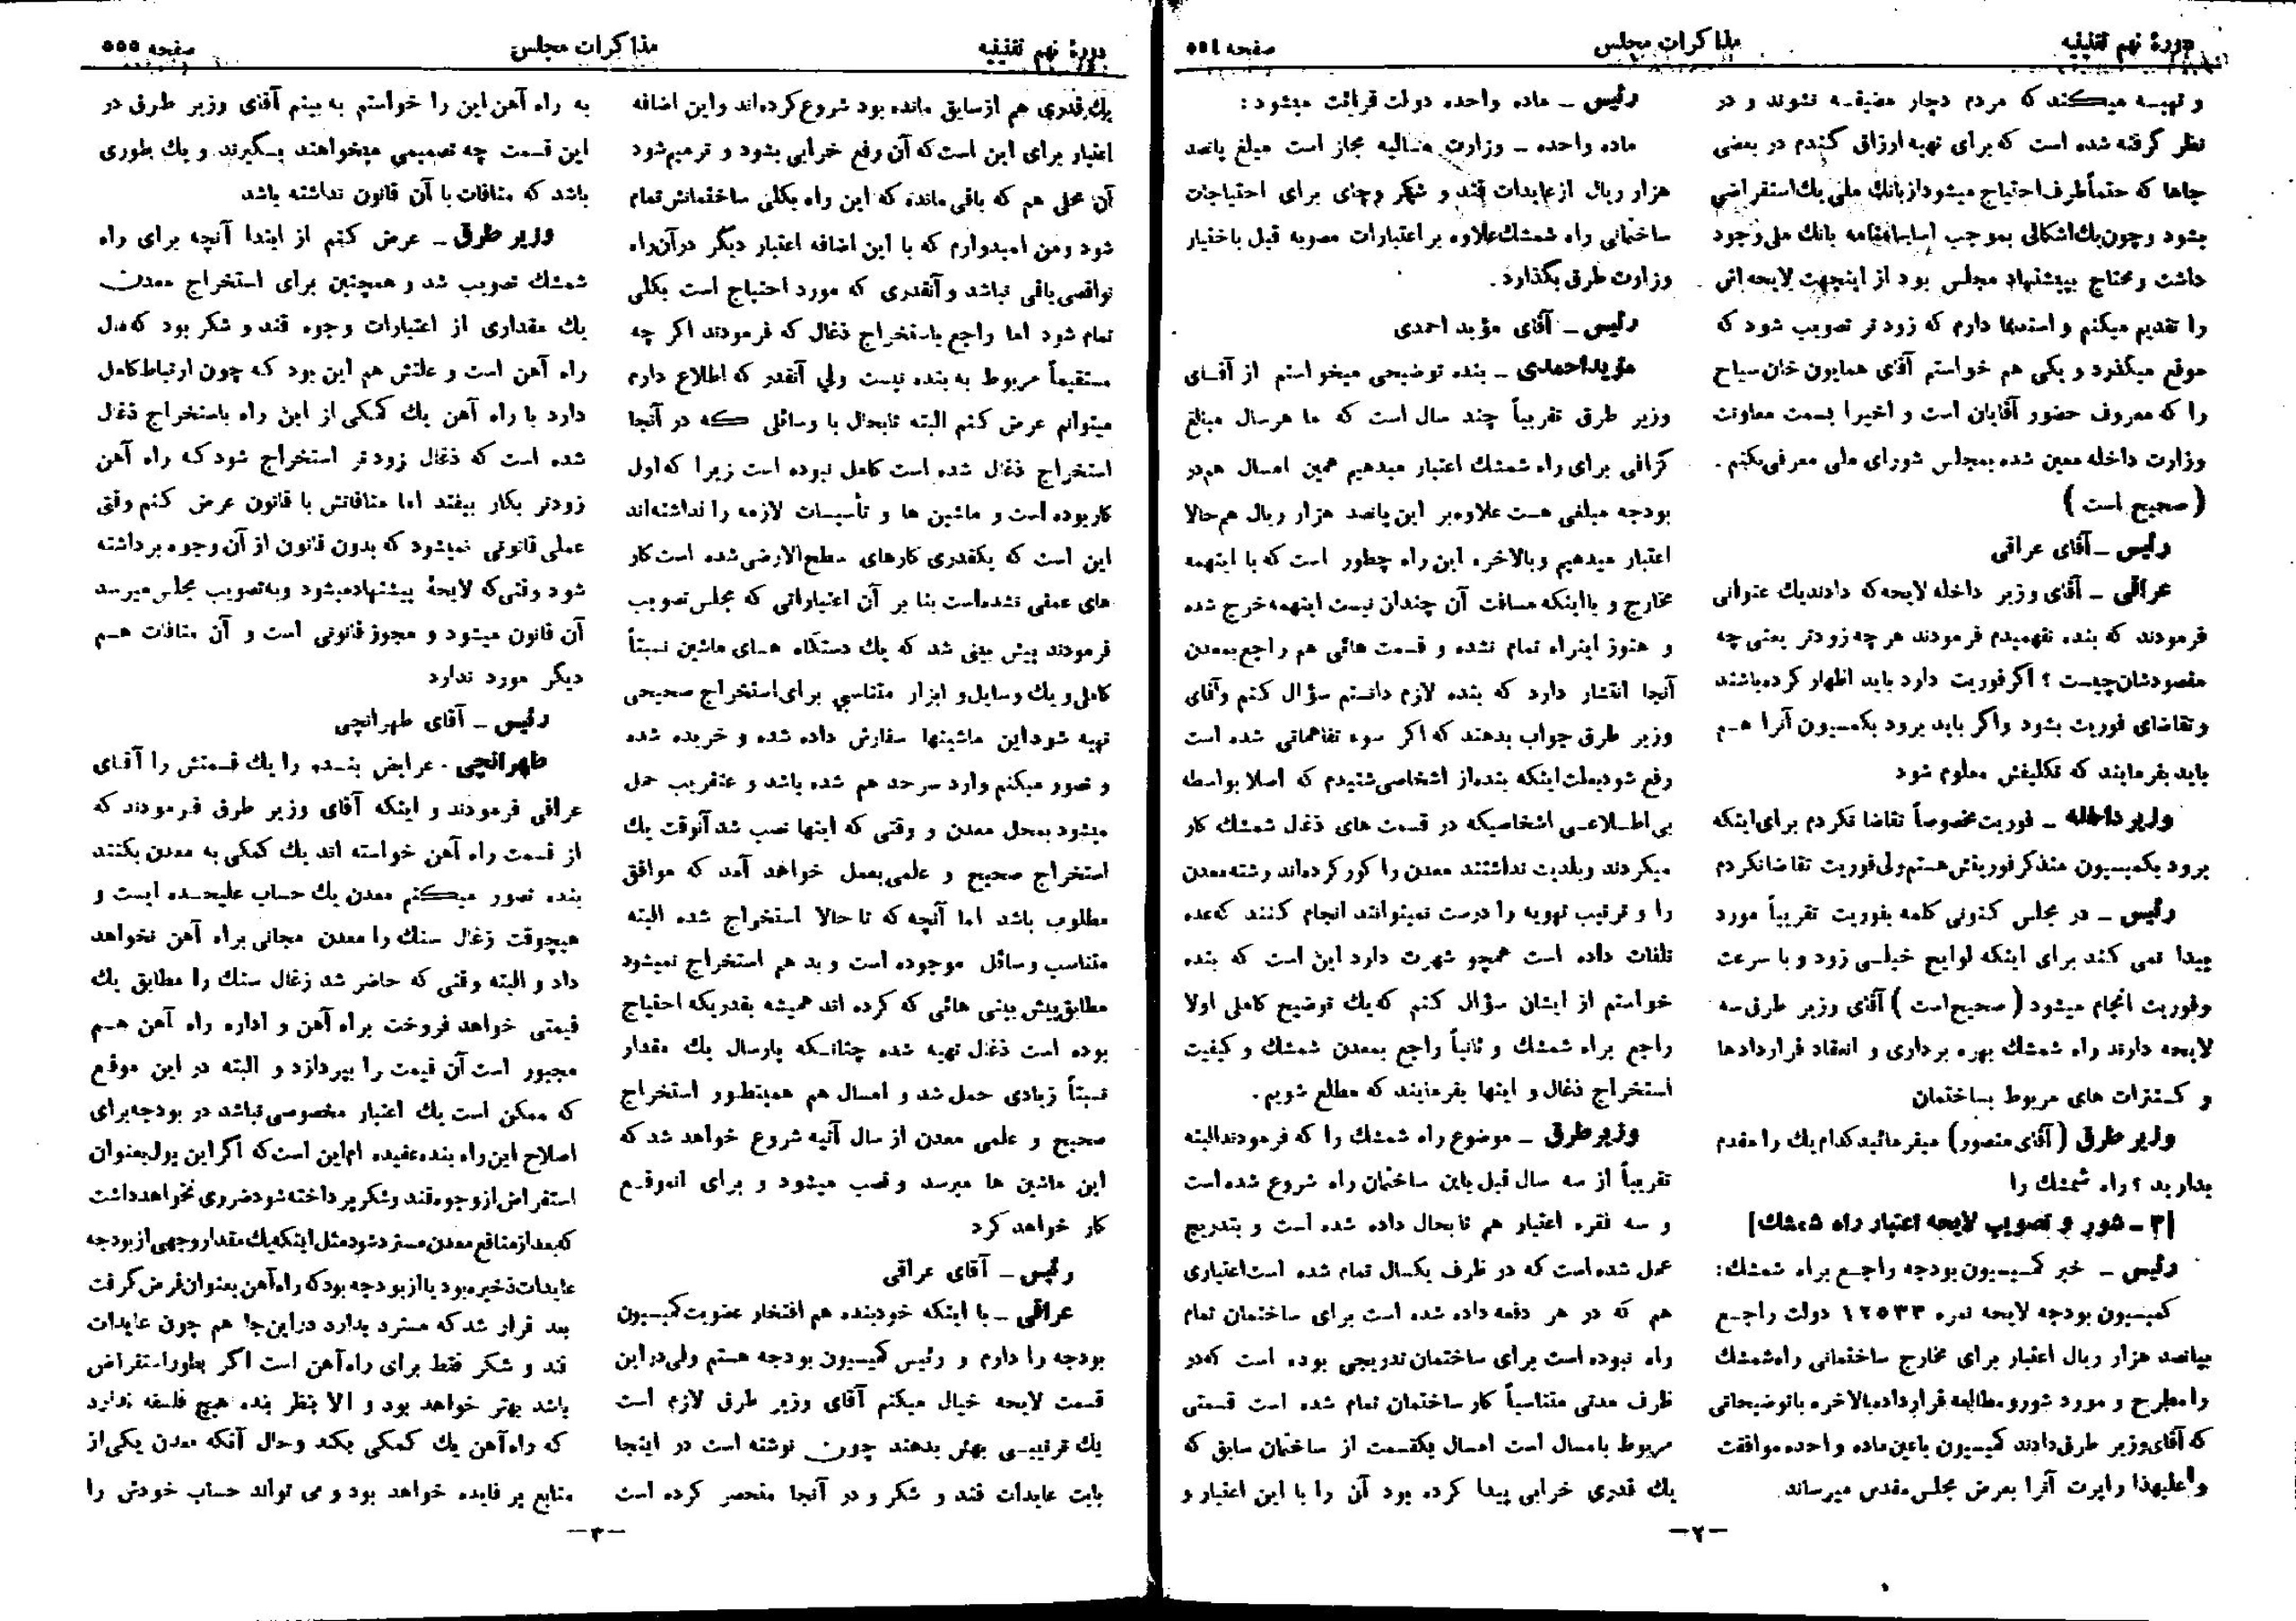 دورهٔ نهم تقنینیه
مذاکرات مجلس
صفحه ٥٥٤
و تهیـه میکند که مردم دچار مضیقـه نشوند و در
نظر گرفته شده است که برای تهیه ارزاق گندم در بعضی
جاها که حتماً طرف احتیاج میشود از بانك ملی یك استقراضی
بشود و چون یك اشکالی بموجب اساسنامه بانك ملی وجود
داشت و محتاج بپیشنهاد مجلس بود از اینجهت لایحه اش
را تقدیم میکنم و استدعا دارم که زودتر تصویب شود که
موقع میگذرد و یکی هم خواستم آقای همایون خان سیاح
را که معروف حضور آقایان است و اخیرا بسمت معاونت
وزارت داخله معین شده بمجلس شورای ملی معرفی بکنم .
( صحیح است )
رئیس ــ آقای عراقی
عراقی ــ آقای وزیر داخله لایحه که دادند یك عنوانی
فرمودند که بنده نفهمیدم فرمودند هر چه زودتر یعنی چه
مقصودشان چیست ؟ اگر فوریت دارد باید اظهار کرده باشند
و تقاضای فوریت بشود و اگر باید برود بکمسیون آنرا هـم
باید بفرمایند که تکلیفش معلوم شود
وزیر داخله ــ فوریت مخصوصاً تقاضا نکردم برای اینکه
برود بکمیسیون متذکر فوریتش هستم ولی فوریت تقاضا نکردم
رئیس ــ در مجلس کنونی کلمه بفوریت تقریباً مورد
پیدا نمی کند برای اینکه لوایح خیلـی زود و با سرعت
وفوریت انجام میشود ( صحیح است ) آقای وزیر طرق سه
لایحه دارند راه شمشك بهره برداری و انعقاد قراردادها
و کنترات های مربوط بساختمان
وزیر طرق ( آقای منصور) میفرمائید کدام یك را مقدم
بدارید ؟ راه شمشك را
[٣ ــ شور و تصویب لایحه اعتبار راه شمشك]
رئیس ــ خبر کمیسیون بودجه راجـع براه شمشك :
کمیسیون بودجه لایحه نمره ١٢٥٣٣ دولت راجـع
بپانصد هزار ریال اعتبار برای مخارج ساختمانی راه شمشك
را مطرح و مورد شور و مطالعه قرار داده بالاخره با توضیحاتی
که آقای وزیر طرق دادند کمیسیون با عین ماده واحده موافقت
و علیهذا راپرت آنرا بعرض مجلس مقدس میرساند
رئیس ــ ماده واحده دولت قرائت میشود :
ماده واحده ــ وزارت مـالیه مجاز است مبلغ پانصد
هزار ریال از عایدات قند و شکر و چای برای احتیاجات
ساختمانی راه شمشك علاوه بر اعتبارات مصوبه قبل باختیار
وزارت طرق بگذارد .
رئیس ــ آقای مؤید احمدی
مؤید احمدی ــ بنده توضیحی میخواستم از آقـای
وزیر طرق تقریباً چند سال است که ما هر سال مبلغ
گزافی برای راه شمشك اعتبار میدهیم همین امسال هم در
بودجه مبلغی هست علاوه بر این پانصد هزار ریال هم حالا
اعتبار میدهیم وبالاخره این راه چطور است که با اینهمه
مخارج و با اینکه مسافت آن چندان نیست اینهمه خرج شده
و هنوز اینراه تمام نشده و قسمت هائی هم راجع بمعدن
آنجا انتشار دارد که بنده لازم دانستم سؤال کنم وآقای
وزیر طرق جواب بدهند که اگر سوء تفاهماتی شده است
رفع شود بعلت اینکه بنده از اشخاصی شنیدم که اصلا بواسطه
بی اطـلاعـی اشخاصیکه در قسمت های ذغال شمشك کار
میکردند و بلدیت نداشتند معدن را کور کرده اند و رشته معدن
را و ترتیب تهویه را درست نمیتوانند انجام کنند که عده
تلفات داده است همچو شهرت دارد این است که بنده
خواستم از ایشان سؤال کنم که یك توضیح کاملی اولا
راجع براه شمشك و ثانیاً راجع بمعدن شمشك و کیفیت
استخراج ذغال و اینها بفرمایند که مطلع شویم .
وزیر طرق ــ موضوع راه شمشك را که فرمودند البته
تقریباً از سه سال قبل باین ساختمان راه شروع شده است
و سه فقره اعتبار هم تا بحال داده شده است و بتدریج
عمل شده است که در ظرف یکسال تمام شده است اعتباری
هم که در هر دفعه داده شده است برای ساختمان تمام
راه نبوده است برای ساختمان تدریجی بوده است که در
ظرف مدتی متناسباً کار ساختمان تمام شده است قسمتی
مربوط بامسال است امسال یکقسمت از ساختمان سابق که
یك قدری خرابی پیدا کرده بود آن را با این اعتبار و
ــ٢ــ
دورهٔ نهم تقنینیه
مذاکرات مجلس
صفحه ٥٥٥
یك قدری هم از سابق مانده بود شروع کرده اند و این اضافه
اعتبار برای این است که آن رفع خرابی بشود و ترمیم شود
آن محلی هم که باقی مانده که این راه بکلی ساختمانش تمام
شود و من امیدوارم که با این اضافه اعتبار دیگر در آن راه
نواقصی باقی نباشد و آنقدری که مورد احتیاج است بکلی
تمام شود اما راجع باستخراج ذغال که فرمودند اگر چه
مستقیماً مربوط به بنده نیست ولی آنقدر که اطلاع دارم
میتوانم عرض کنم البته تابحال با وسائلی که در آنجا
استخراج ذغال شده است کامل نبوده است زیرا که اول
کار بوده است و ماشین ها و تأسیسات لازمه را نداشته اند
این است که یکقدری کارهای سطح الارضی شده است کار
های عمقی نشده است بنا بر آن اعتباراتی که مجلس تصویب
فرمودند پیش بینی شد که یك دستگاه هـای ماشین نسبتاً
کاملی و یك وسایل و ابزار متناسبی برای استخراج صحیحی
تهیه شود این ماشینها سفارش داده شده و خریده شده
و تصور میکنم وارد سرحد هم شده باشد و عنقریب حمل
میشود بمحل معدن و وقتی که اینها نصب شد آنوقت یك
استخراج صحیح و علمی بعمل خواهد آمد که موافق
مطلوب باشد اما آنچه که تا حالا استخراج شده البته
متناسب وسائل موجوده است و بد هم استخراج نمیشود
مطابق پیش بینی هائی که کرده اند همیشه بقدریکه احتیاج
بوده است ذغال تهیه شده چنانـکه پارسال یك مقدار
نسبتاً زیادی حمل شد و امسال هم همینطور استخراج
صحیح و علمی معدن از سال آتیه شروع خواهد شد که
این ماشین ها میرسد و نصب میشود و برای انموقـع
کار خواهد کرد
رئیس ــ آقای عراقی
عراقی ــ با اینکه خود بنده هم افتخار عضویت کمیسیون
بودجه را دارم و رئیس کمیسیون بودجه هستم ولی در این
قسمت لایحه خیال میکنم آقای وزیر طرق لازم است
یك ترتیبـی بهش بدهند چون نوشته است در اینجا
بابت عایدات قند و شکر و در آنجا منحصر کرده است
به راه آهن این را خواستم به بینم آقای وزیر طرق در
این قسمت چه تصمیمی میخواهند بـگیرند و یك بطوری
باشد که منافات با آن قانون نداشته باشد
وزیر طرق ــ عرض کنم از ابتدا آنچه برای راه
شمشك تصویب شد و همچنین برای استخراج معدن
یك مقداری از اعتبارات وجوه قند و شکر بود که مال
راه آهن است و علتش هم این بود که چون ارتباط کامل
دارد با راه آهن یك کمکی از این راه باستخراج ذغال
شده است که ذغال زودتر استخراج شود که راه آهن
زودتر بکار بیفتد اما منافاتش با قانون عرض کنم وقتی
عملی قانونی نمیشود که بدون قانون از آن وجوه برداشته
شود وقتی که لایحهٔ پیشنهاد میشود و به تصویب مجلس میرسد
آن قانون میشود و مجوز قانونی است و آن منافات هـم
دیگر مورد ندارد
رئیس ــ آقای طهرانچی
طهرانچی . عرایض بنـده را یك قسمتش را آقـای
عراقی فرمودند و اینکه آقای وزیر طرق فرمودند که
از قسمت راه آهن خواسته اند یك کمکی به معدن بکنند
بنده تصور میکنم معدن یك حساب علیحـده ایست و
هیچوقت زغال سنك را معدن مجانی براه آهن نخواهد
داد و البته وقتی که حاضر شد زغال سنك را مطابق یك
قیمتی خواهد فروخت براه آهن و اداره راه آهن هـم
مجبور است آن قیمت را بپردازد و البته در این موقـع
که ممکن است یك اعتبار مخصوصی نباشد در بودجه برای
اصلاح این راه بنده عقیده ام این است که اگر این پول بعنوان
استقراض از وجوه قند و شکر پرداخته شود ضرری نخواهد داشت
که بعد از منافع معدن مسترد شود مثل اینکه یك مقدار وجهی از بودجه
عایدات ذخیره بود یا از بودجه بود که راه آهن بعنوان قرض گرفت
بعد قرار شد که مسترد بدارد در این جا هم چون عایدات
قند و شکر فقط برای راه آهن است اگر بطور استقراض
باشد بهتر خواهد بود و الا بنظر بنده هیچ فلسفه ندارد
که راه آهن یك کمکی بکند و حال آنکه معدن یکی از
منابع پر فایده خواهد بود و می تواند حساب خودش را
ــ٣ــ